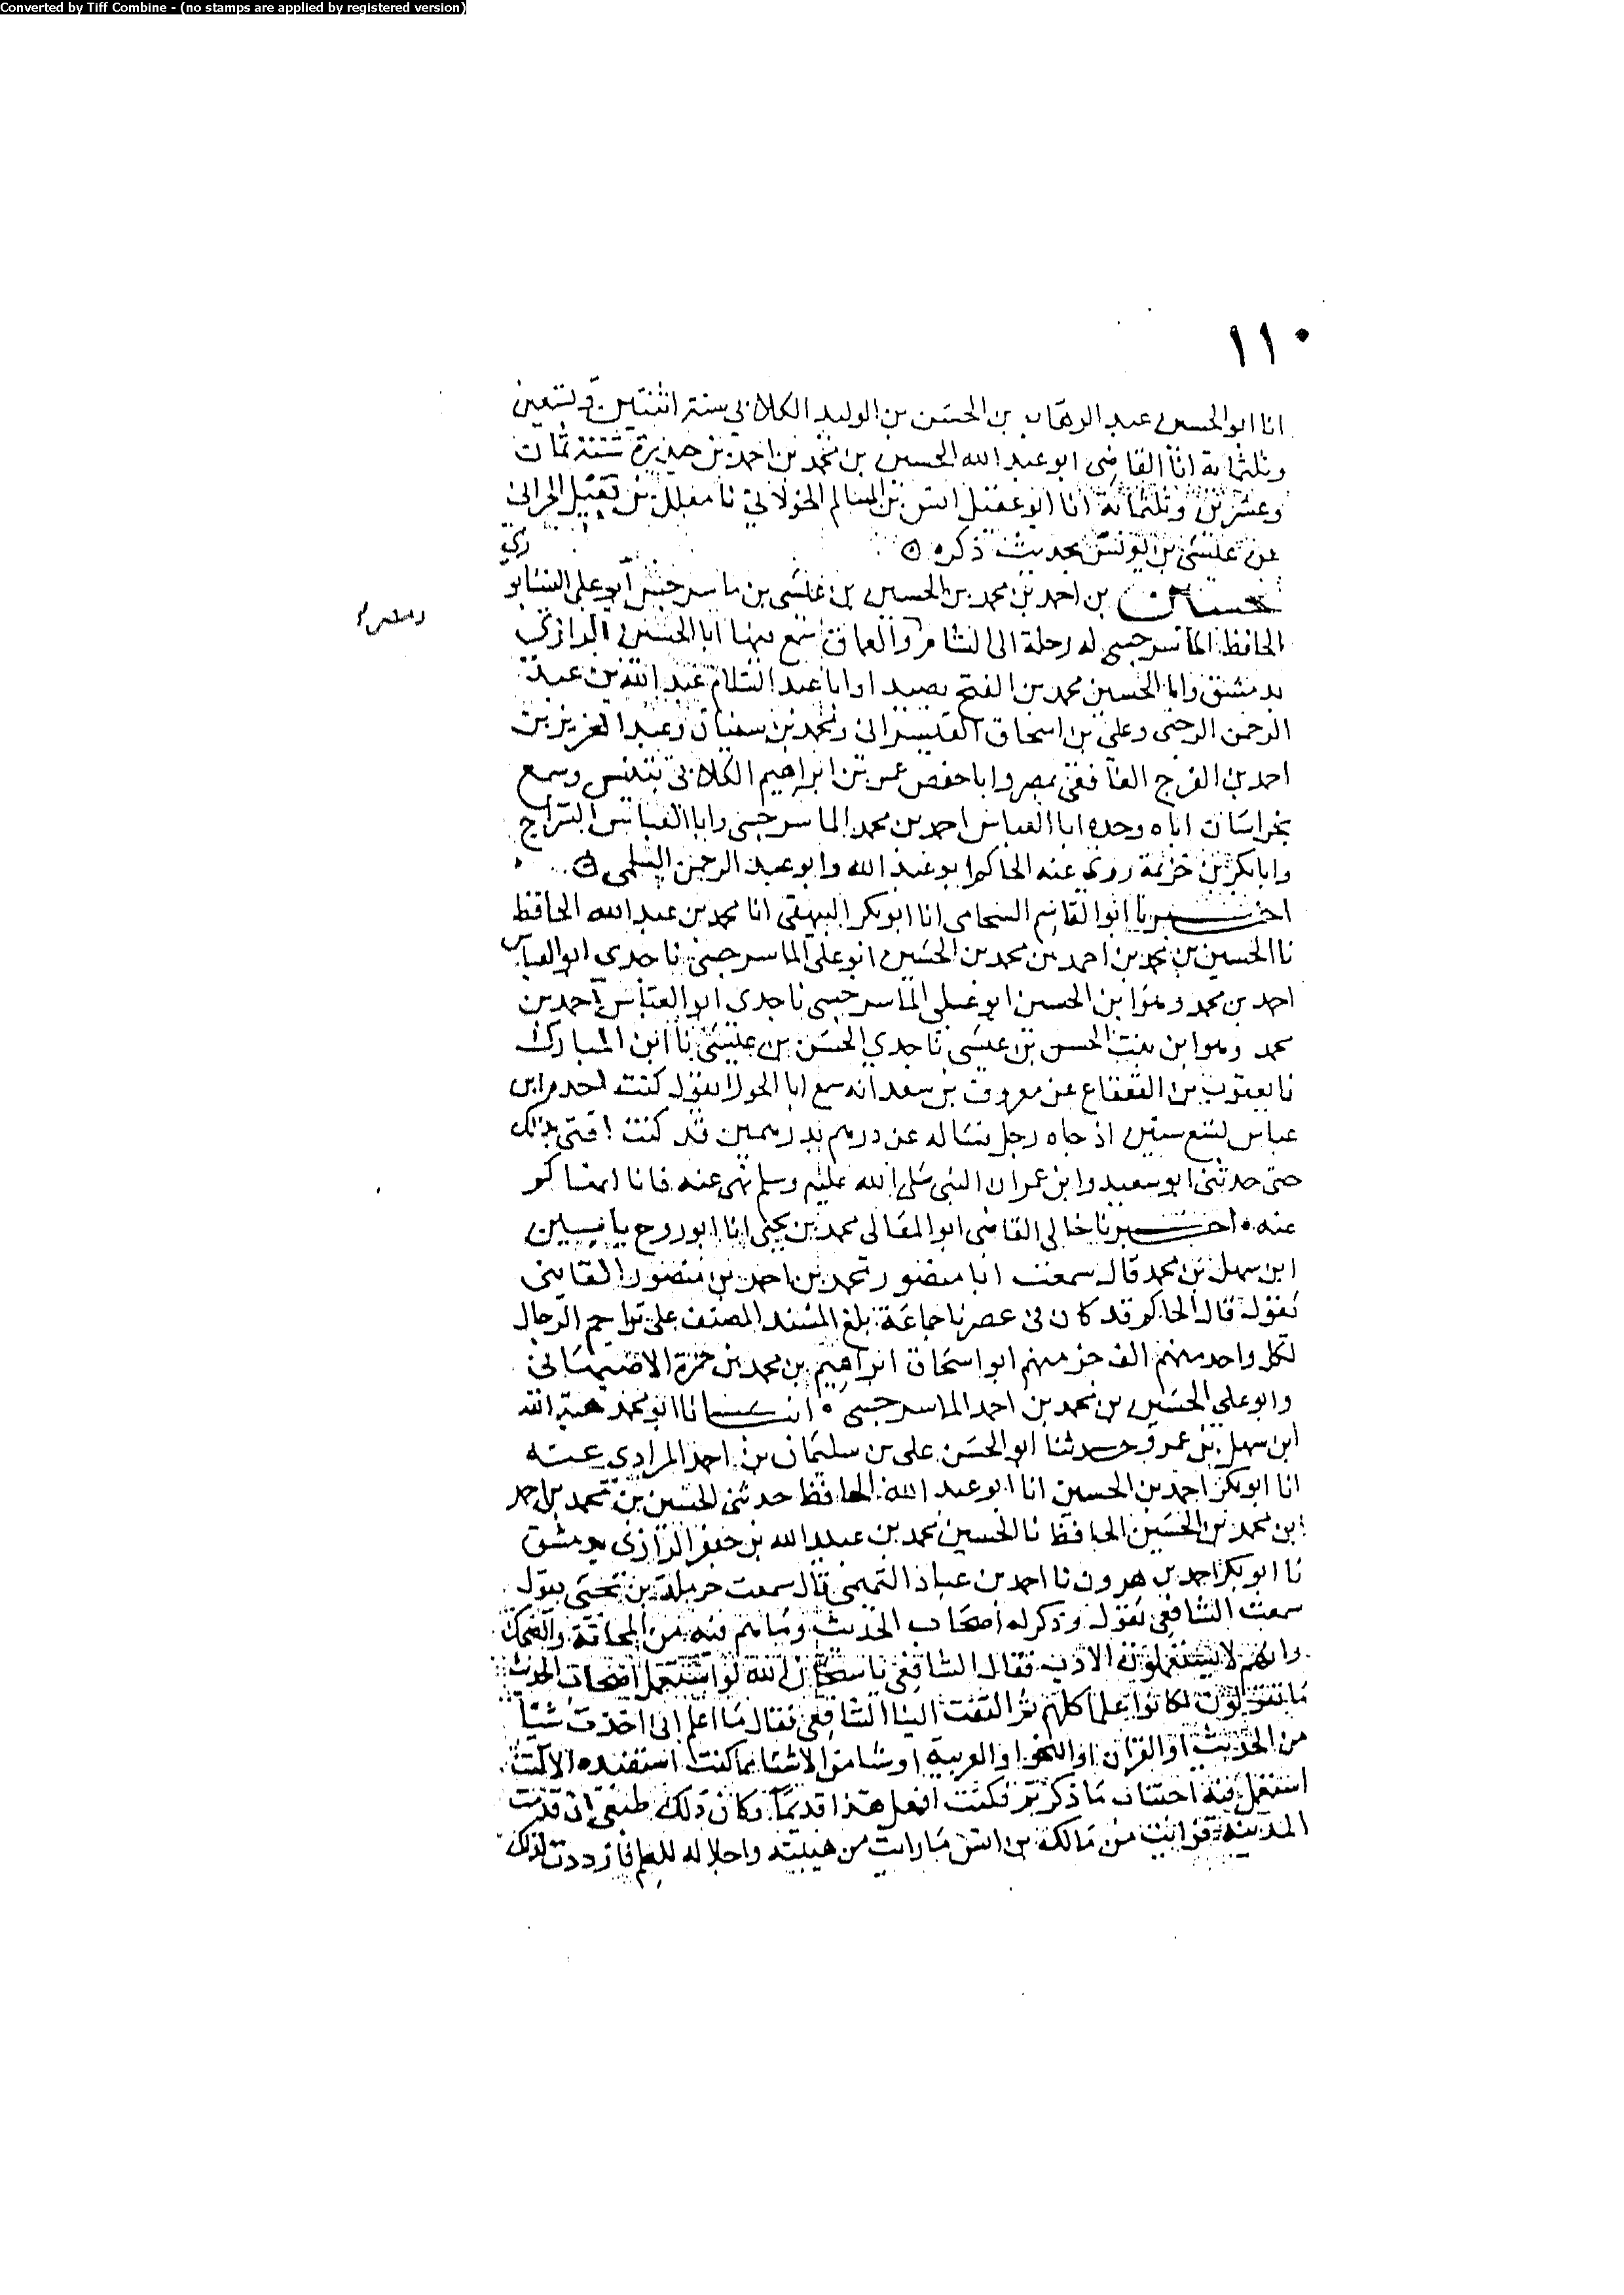 Converted by Tiff Combine - (no stamps are applied by registered version)
١١٠
انا ابو الحسين عبد الوهاب بن الحسن بن الوليد الكلابي سنة اثنتين وتسعين
وثلثماية انا القاضي ابو عبد الله الحسين بن محمد بن احمد بن سنة ثمان
وعشرين وثلثمائة انا ابو عقيل انس بن السالم الخولاني نا معلل بن نفيل الحراني
عن عيسى بن يونس بحديث ذكره
بن احمد بن محمد بن الحسين بن عيسى بن ماسرجس ابو علي النيسابوري
الحافظ الماسرجسي له رحلة الى الشام والعراق سمع بها ابا الحسين الرازي
بدمشق وابا الحسين محمد بن الفتح بصيدا وابا عبد السلام عبد الله بن عبد
الرحمن الرحبي وعلي بن اسحاق القيسراني ومحمد بن سفيان وعبد العزيز بن
احمد بن الفرج الغافقي بمصر وابا حفص عمر بن ابراهيم الكلابي بتنيس وسمع
بخراسان اباه وجده ابا العباس احمد بن محمد الماسرجسي وابا العباس السراج
وابا بكر بن خزيمة روى عنه الحاكم ابو عبد الله وابو عبد الرحمن السلمي
اخبرنا ابو القاسم الشحامي انا ابو بكر البيهقي انا محمد بن عبد الله الحافظ
نا الحسين بن محمد بن احمد بن محمد بن الحسين ابو علي الماسرجسي نا جدي ابو العباس
احمد بن محمد وهو ابن الحسين ابو علي الماسرجسي نا جدي ابو العباس احمد بن
محمد وهو ابن بنت الحسن بن عيسى نا جدي الحسن بن عيسى نا ابن المبارك
نا يعقوب بن القعقاع عن معروف بن سعد انه سمع ابا الجوزا يقول كنت اخدم ابن
عباس تسع سنين اذ جاه رجل يساله عن درهم بدرهمين قد كنت افتي بذلك
حتى حدثني ابو سعيد وابن عمر ان النبي صلى الله عليه وسلم نهى عنه فانا انهاكم
عنه اخبرنا خالي القاضي ابو المعالي محمد بن يحيى انا ابو روح ياسين
ابن سهل بن محمد قال سمعت ابا منصور محمد بن احمد بن منصور القايني
يقول قال الحاكم قد كان في عصرنا جماعة بلغ المسند المصنف على تراجم الرجال
لكل واحد منهم الف جزء منهم ابو اسحاق ابراهيم بن محمد بن حمزة الاصبهاني
وابو علي الحسين بن محمد بن احمد الماسرجسي انبانا ابو محمد هبة الله
ابن سهل بن عمر وحدثنا ابو الحسن علي بن سليمان بن احمد المرادي عنه
انا ابو بكر احمد بن الحسين انا ابو عبد الله الحافظ حدثني الحسين بن محمد بن احمد
ابن محمد بن الحسين الحافظ نا الحسين محمد بن عبد الله بن جعفر الرازي بدمشق
نا ابو بكر احمد بن هرون نا احمد بن عباد التميمي قال سمعت حرملة بن يحيى يقول
سمعت الشافعي يقول وذكر له اصحاب الحديث وما هم فيه من المجانة والضحك
وانهم لا يستعملون الادب فقال الشافعي يا سبحان الله لو استعمل اصحاب الحديث
ما تقولون لكانوا علما كلهم ثم التفت الينا الشافعي فقال ما اعلم اني اخذت شيئا
من الحديث او القران او النحو او العربية او شيا من الاشيا مما كنت استفيده الا كنت
استعمل فيه اجتناب ما ذكرتم فكنت افعل هذا قديما وكان ذلك طبعي ان قدمت
المدينة فرايت من مالك بن انس ما رايت من هيبته واجلاله للعلم فازددت لذلك